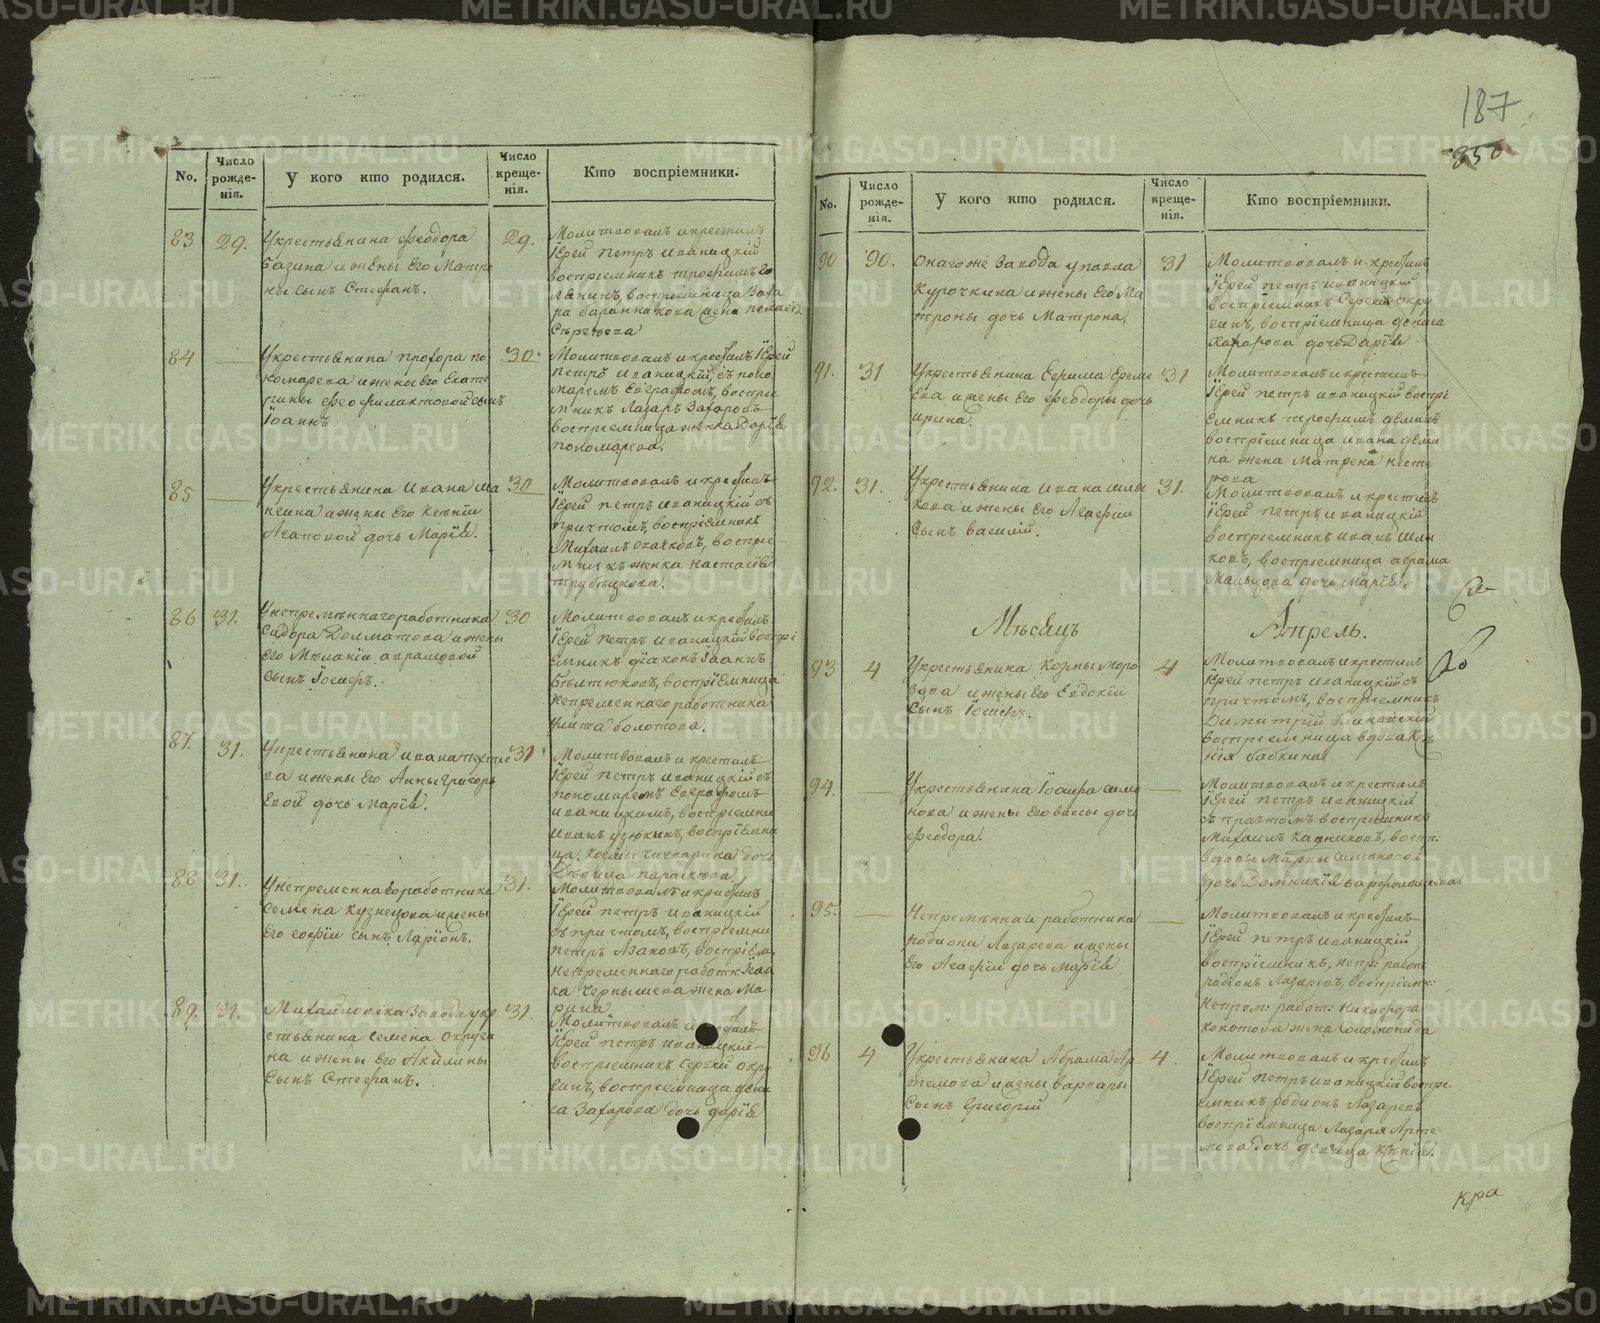 187
850
No.
Число рожде-нія.
У кого кто родился.
Число креще-нія.
Кто воспріемники.
83
29.
Укрестьянина Феодора
Базина и жены Его Матро
ны сынъ Стефанъ.
29.
Молитвовалъ и крестилъ
Іерей Петръ Иваницкій
воспріемникъ Трофимъ
воспріемница Заха
ра
жена
84
Укрестьянина Прохора По
номарева и жены Его Екате
рины Феофилактовой сынъ
Іоаннъ.
30.
Молитвовалъ и крестилъ Іерей
Петръ Иваницкій, съ поно
маремъ Евграфомъ, воспріе
м'никъ Лазарь Захаровъ
воспріемница женка Дарія
Пономарева.
85
Укрестьянина Ивана
и жены Его Ксении
Агаповой дочь Марія.
30
Молитвовалъ и крестилъ
Іерей Петръ Иваницкій съ
причтомъ, воспріемникъ
Михаилъ
женка Настасія
86
31.
Унепремѣннаго работника
Сидора Долматова и жены
Его Меланіи Аврамовой
сынъ Іосифъ.
30
Молитвовалъ и крестилъ
Іерей Петръ Иваницкій воспрі
емникъ діаконъ Іоаннъ
воспріемница
непременнаго работника
Улита Болотова.
87.
31.
Укрестьянина Ивана
ва и жены Его Анны Григорь
евой дочь Марія.
31
Молитвовалъ и крестилъ
Іерей Петръ Иваницкій съ
пономаремъ Евграфомъ
Иваницкимъ, воспріемни
Иванъ воспріемни
ца дочь
девица Параскева
88
31.
Унепременнаго работника
Семена Кузнецова и жены
Его Софіи сынъ Ларіонъ.
31.
Молитвовалъ и крестилъ
Іерей Петръ Иваницкій
съ причтомъ, воспріемни
Петръ Казаковъ, воспріем
непременнаго работн: Исаа
ка Чернышева жена Ма
рина
89.
31.
Михайловска завода у кр
естьянина Семена Округи
на и жены Его Акилины
сынъ Стефанъ.
31.
Молитвовалъ и крестилъ
Іерей Петръ Иваницкій
воспріемникъ Сергей Окру
гинъ, воспріемница дени
са Захарова дочь Дарія
No.
Число рожде-нія.
У кого кто родился.
Число креще-нія.
Кто воспріемники.
90
90.
Онагоже завода у Павла
Курочкина и жены Его Ма
троны дочь Матрона,
31
Молитвовалъ и крестилъ
Іерей Петръ Иваницкій
воспріемникъ Сергей Окру
гинъ, воспріемница дениса
Захарова дочь Дарія
91.
31
Укрестьянина Ефима Ереме
ева и жены Его Феодоры дочь
Ирина.
31
Молитвовалъ и крестилъ
Іерей Петръ Иваницкій воспрі
емникъ Трофимъ Деминъ
воспріемница Ивана Деми
на жена Матрена Несте
рова
92.
31.
Укрестьянина Ивана Шлы
кова и жены Его Агафіи
сынъ Василій.
31.
Молитвовалъ и крестилъ
Іерей Петръ Иваницкій
воспріемникъ Иванъ Шлы
ковъ, воспріемница Абрама
Мальцова дочь Марія.
Мѣсяцъ
Апрель.
93
4
Укрестьянина Козмы Моро
зова и жены Его Евдокіи
сынъ Іосифъ.
4
Молитвовалъ и крестилъ
Іерей Петръ Иваницкій съ
причтомъ, воспріемникъ
Димитрій
воспріемница вдова Ксе
нія Бабкина
94.
Укрестьянина Іосифа Симо
нова и жены Его Вассы дочь
Феодора.
Молитвовалъ и крестилъ
Іерей Петръ Иваницкій
съ причтомъ воспріемникъ
Михаилъ воспр:
вдовы Марфы Симоновой
дочь Домникія Варфоломеева
95.
Непремѣннаго работника
Родиона Лазарева и жены
Его Агафіи дочь Марія
Молитвовалъ и крестилъ
Іерей Петръ Иваницкій
воспріемникъ, непр: работ
Радіонъ Лазаревъ, воспріем:
непрем: работ: Никифора
Кокотова жена Соломонида
96
4
Укрестьянина Абрама Ар
темова и жены Варвары
сынъ Григорій
4.
Молитвовалъ и крестилъ
Іерей Петръ Иваницкій воспрі
емникъ Родионъ Лазаревъ
воспріемница Лазаря Арте
мова дочь девица Ксенія.
кра